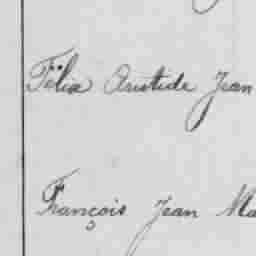 Félix Aristide Jean
François Jean Ma